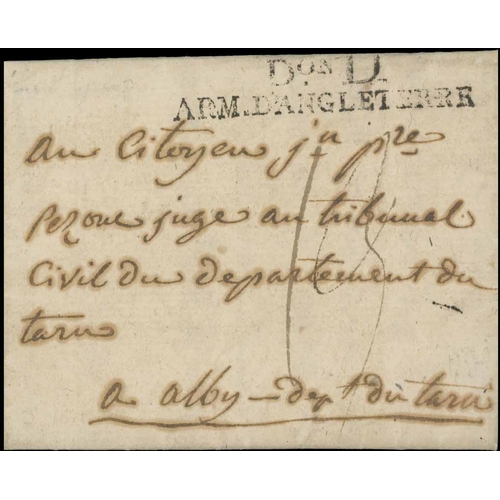 Don D.
ARM.D'ANGLETERRE
au Citoyen jn pre
Pezous juge au tribunal
Civil du departement du
tarn
a alby - dept du tarn